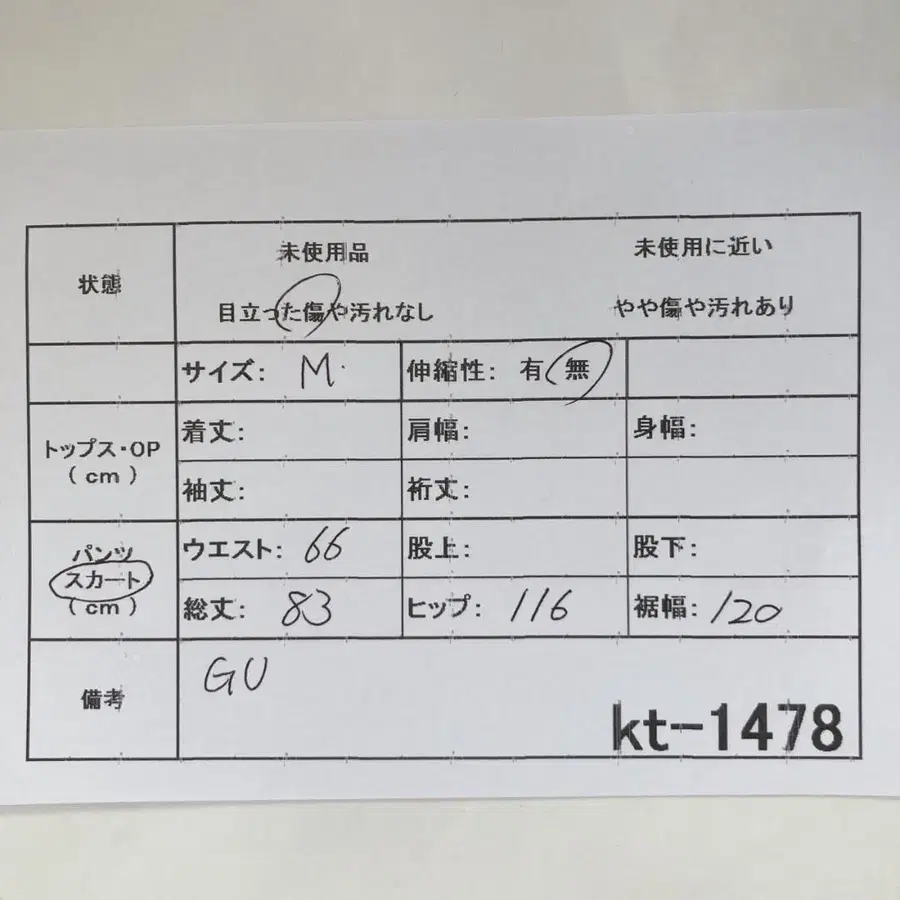 状態
未使用品 未使用に近い
目立った傷や汚れなし やや傷や汚れあり
サイズ: M. 伸縮性: 有 無
トップス・OP
(cm)
着丈: 肩幅: 身幅:
袖丈: 裄丈:
パンツ
スカート
(cm)
ウエスト: 66 股上: 股下:
総丈: 83 ヒップ: 116 裾幅: 120
備考
GU
kt-1478